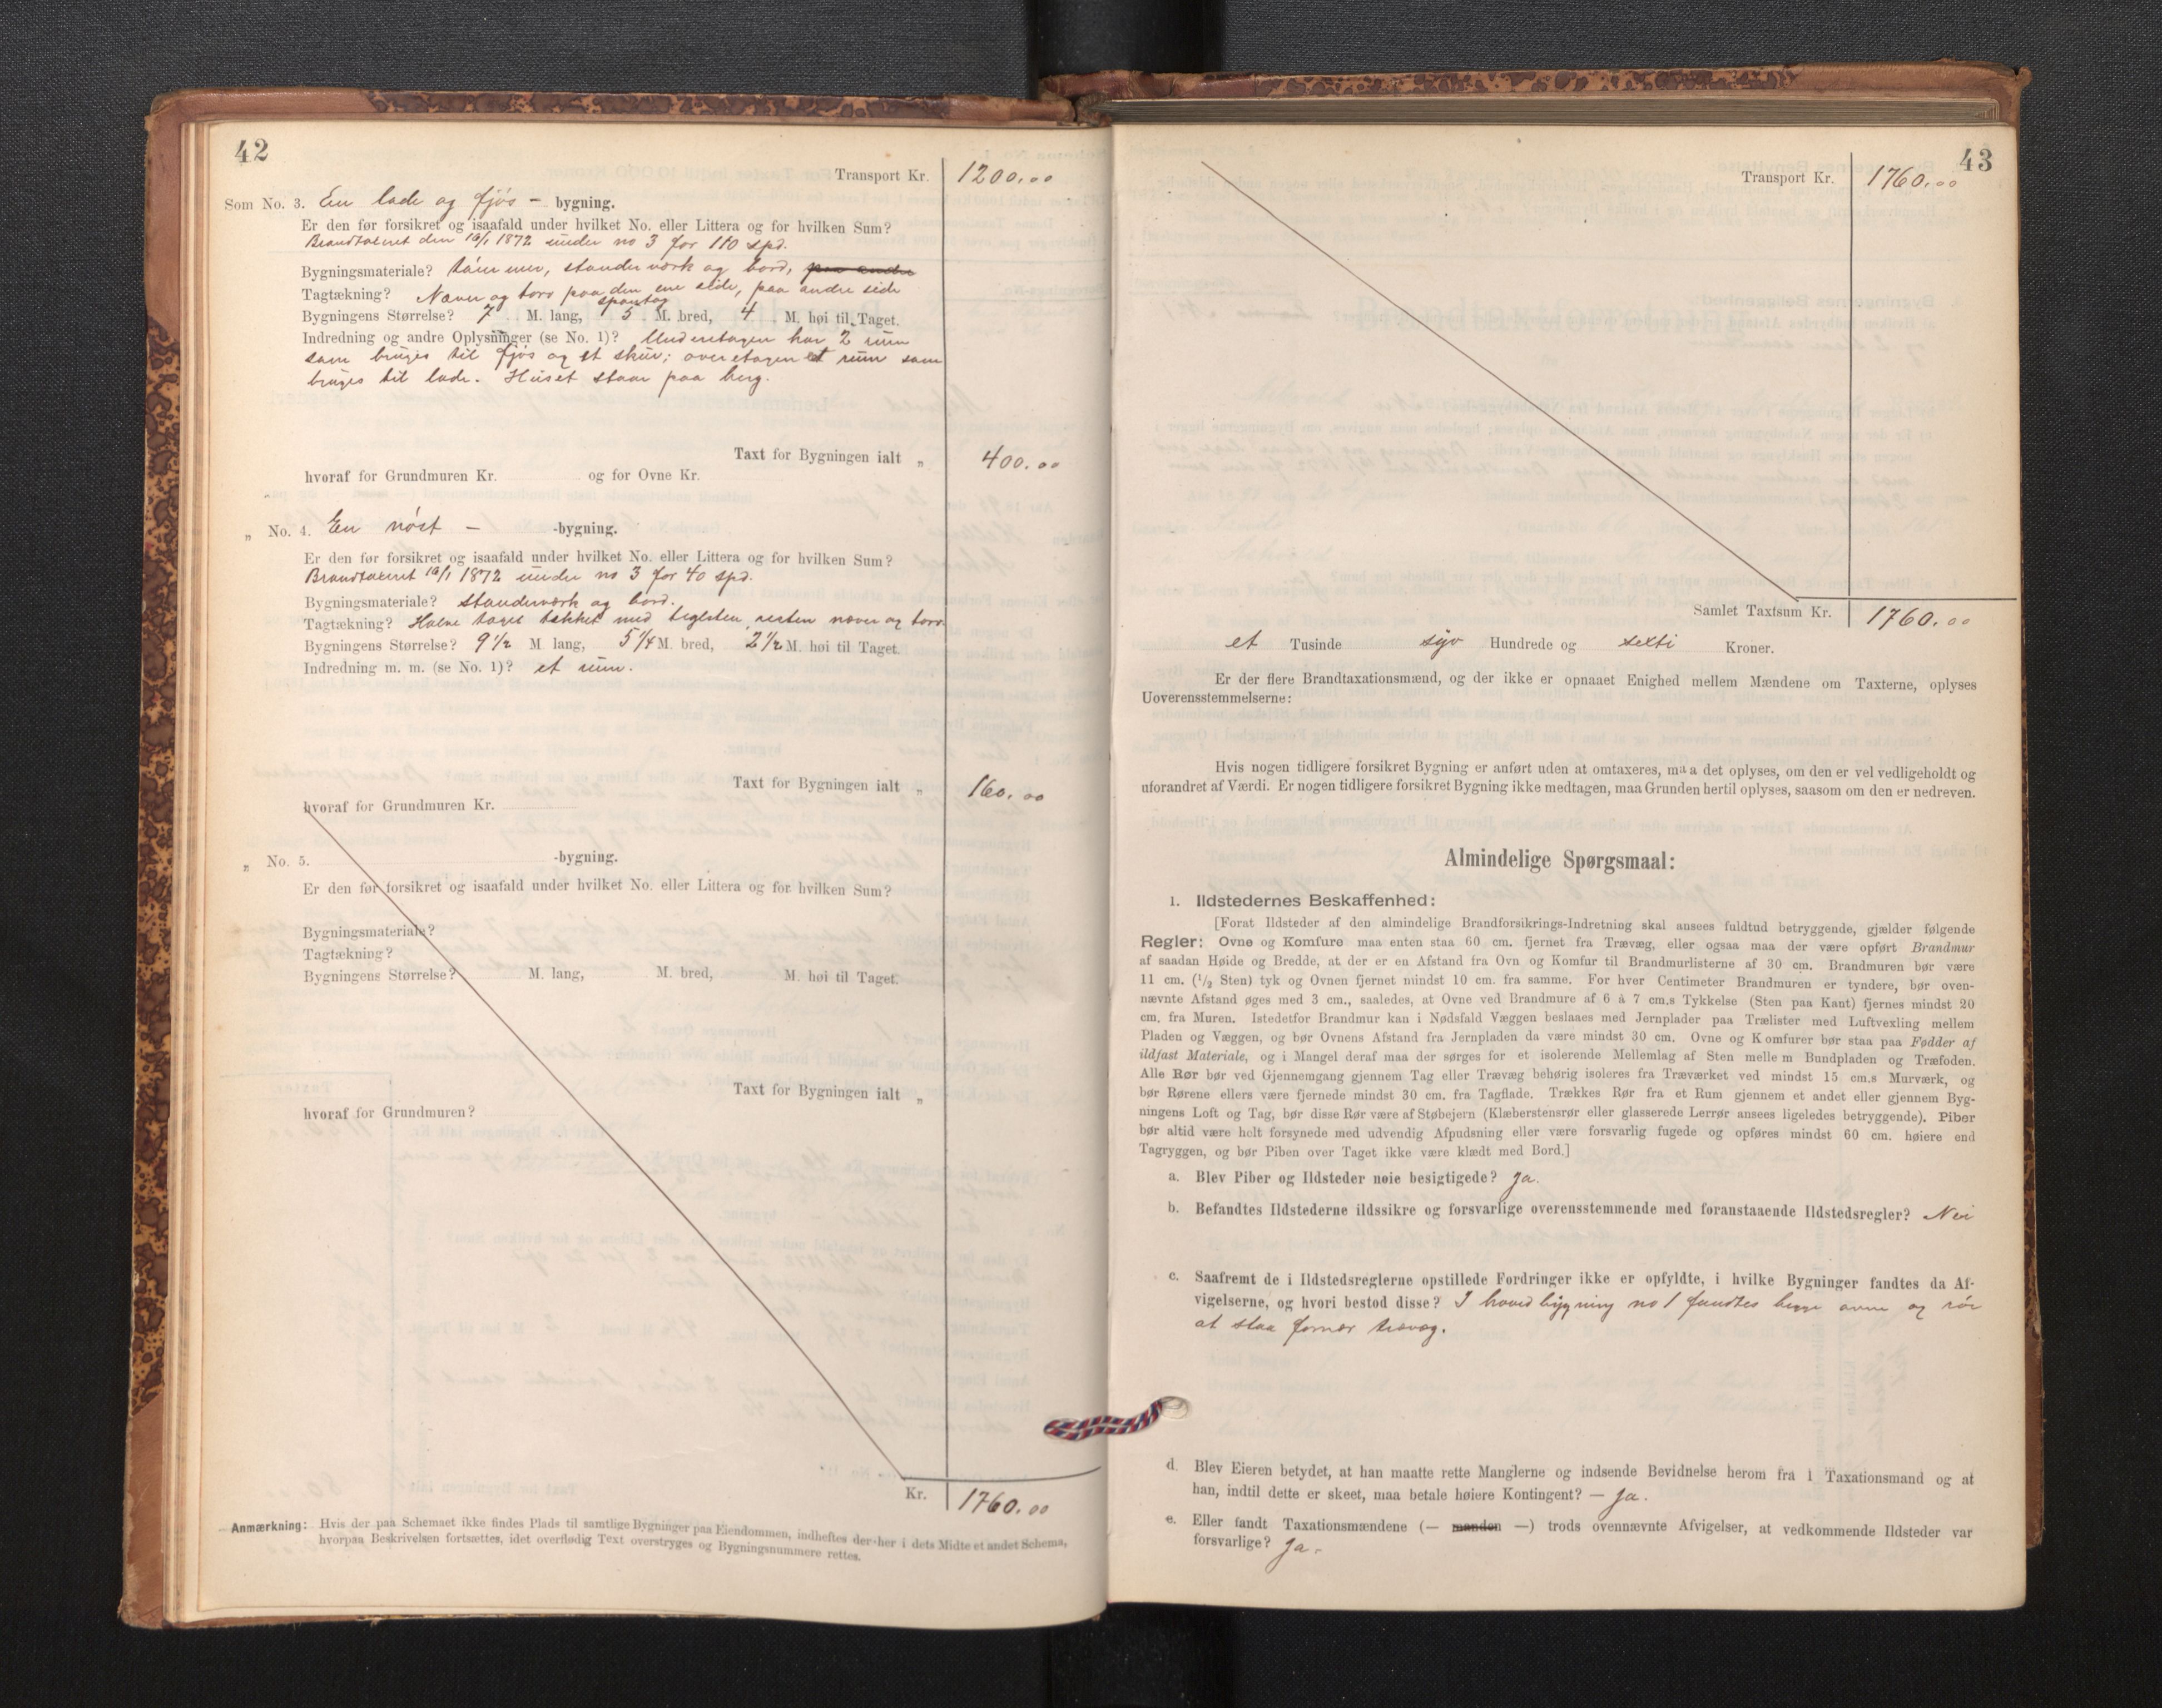 42
Transport Kr. 1200.00
Som No. 3. En lade og fjøs - bygning.
Er den før forsikret og isaafald under hvilket No. eller Littera og for hvilken Sum?
Brandtaxeret den 16/1 1872 under no 3 for 110 spd.
Bygningsmateriale? tømmer, stenderværk og bord, paa andre
Tagtækning? Næver og torv paa den ene side, paa andre side
spontag
Bygningens Størrelse? 7 M. lang, 5 M. bred, 4 M. høi til Taget.
Indredning og andre Oplysninger (se No. 1)? Underetagen har 2 rum
som bruges til fjøs og et skur; overetagen et rum som
bruges til lade. Huset staar paa berg.
Taxt for Bygningen ialt „ 400.00
hvoraf for Grundmuren Kr. og for Ovne Kr.
„ No. 4. En nøst - -bygning.
Er den før forsikret og isaafald under hvilket No. eller Littera og for hvilken Sum?
Brandtaxeret 16/1 1872 under no 3 for 40 spd.
Bygningsmateriale? standerværk og bord.
Tagtækning? Halve taget tækket med teglsten, resten næver og torv.
Bygningens Størrelse? 9 1/2 M lang, 5 1/4 M. bred, 2 1/2 M. høi til Taget.
Indredning m. m. (se No. 1)? et rum.
Taxt for Bygningen ialt „ 160.00
hvoraf for Grundmuren Kr.
„ No. 5. -bygning.
Er den før forsikret og isaafald under hvilket No. eller Littera og for hvilken Sum?
Bygningsmateriale?
Tagtækning?
Bygningens Størrelse? M. lang, M. bred, M. høi til Taget.
Taxt for Bygningen ialt „
hvoraf for Grundmuren?
Kr. 1760.00
Anmærkning: Hvis der paa Schemaet ikke findes Plads til samtlige Bygninger paa Eiendommen, indheftes der her i dets Midte et andet Schema,
hvorpaa Beskrivelsen fortsættes, idet overflødig Text overstryges og Bygningsnummere rettes.
43
Transport Kr. 1760.00
Samlet Taxtsum Kr. 1760.00
et Tusinde syv Hundrede og sexti Kroner.
Er der flere Brandtaxationsmænd, og der ikke er opnaaet Enighed mellem Mændene om Taxterne, oplyses
Uoverensstemmelserne:
Hvis nogen tidligere forsikret Bygning er anført uden at omtaxeres, maa det oplyses, om den er vel vedligeholdt og
uforandret af Værdi. Er nogen tidligere forsikret Bygning ikke medtagen, maa Grunden hertil oplyses, saasom om den er nedreven.
Almindelige Spørgsmaal:
1. Ildstedernes Beskaffenhed:
[Forat Ildsteder af den almindelige Brandforsikrings-Indretning skal ansees fuldtud betryggende, gjælder følgende
Regler: Ovne og Komfure maa enten staa 60 cm. fjernet fra Trævæg, eller ogsaa maa der være opført Brandmur
af saadan Høide og Bredde, at der er en Afstand fra Ovn og Komfur til Brandmurlisterne af 30 cm. Brandmuren bør være
11 cm. (1/2 Sten) tyk og Ovnen fjernet mindst 10 cm. fra samme. For hver Centimeter Brandmuren er tyndere, bør oven-
nævnte Afstand øges med 3 cm., saaledes, at Ovne ved Brandmure af 6 à 7 cm.s Tykkelse (Sten paa Kant) fjernes mindst 20
cm. fra Muren. Istedetfor Brandmur kan i Nødsfald Væggen beslaaes med Jernplader paa Trælister med Luftvexling mellem
Pladen og Væggen, og bør Ovnens Afstand fra Jernpladen da være mindst 30 cm. Ovne og Komfurer bør staa paa Fødder af
ildfast Materiale, og i Mangel deraf maa der sørges for et isolerende Mellemlag af Sten mellem Bundpladen og Træfoden.
Alle Rør bør ved Gjennemgang gjennem Tag eller Trævæg behørig isoleres fra Træværket ved mindst 15 cm.s Murværk, og
bør Rørene ellers være fjernede mindst 30 cm. fra Tagflade. Trækkes Rør fra et Rum gjennem et andet eller gjennem Byg-
ningens Loft og Tag, bør disse Rør være af Støbejern (Klæberstensrør eller glasserede Lerrør ansees ligeledes betryggende). Piber
bør altid være helt forsynede med udvendig Afpudsning eller være forsvarlig fugede og opføres mindst 60 cm. høiere end
Tagryggen, og bør Piben over Taget ikke være klædt med Bord.]
a. Blev Piber og Ildsteder nøie besigtigede? Ja.
b. Befandtes Ildstederne ildssikre og forsvarlige overensstemmende med foranstaaende Ildstedsregler? Nei
c. Saafremt de i Ildstedsreglerne opstillede Fordringer ikke er opfyldte, i hvilke Bygninger fandtes da Af-
vigelserne, og hvori bestod disse? I hovedbygning no 1 fandtes begge ovne og rør
at staa fornær trævæg.
d. Blev Eieren betydet, at han maatte rette Manglerne og indsende Bevidnelse herom fra 1 Taxationsmand og at
han, indtil dette er skeet, maa betale høiere Kontingent? — Ja.
e. Eller fandt Taxationsmændene (— manden —) trods ovennævnte Afvigelser, at vedkommende Ildsteder var
forsvarlige? Ja.